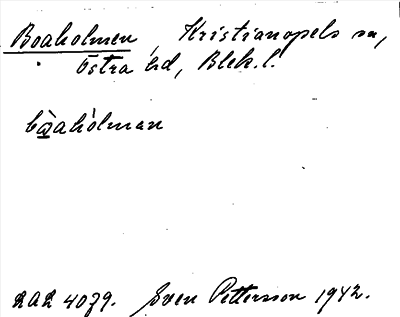 Boaholmen, Kristianopels sn,
Östra hd, Blek.l.
bòahòlman
RAÄ 4079. Sven Pettersson 1942.